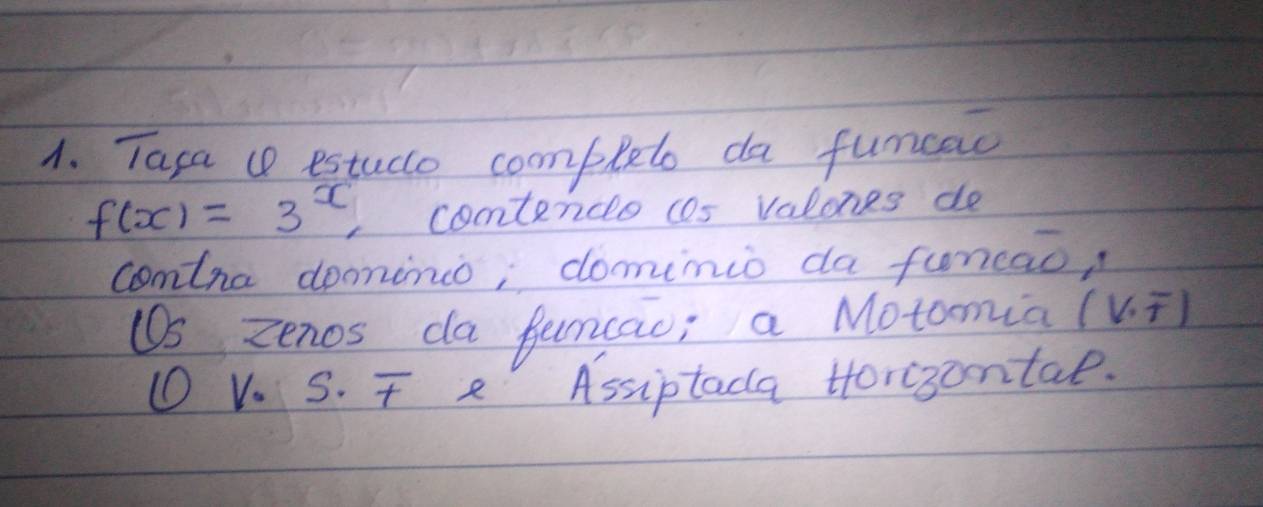 1. Faça o estudo completo da funcāo
f(x) = 3^x, contendo os valores de
contra dominio; dominio da funcāo;
Os zeros da funcāo; a Motomia (V.F)
O V. S. F e Ássiptada Horizontal.